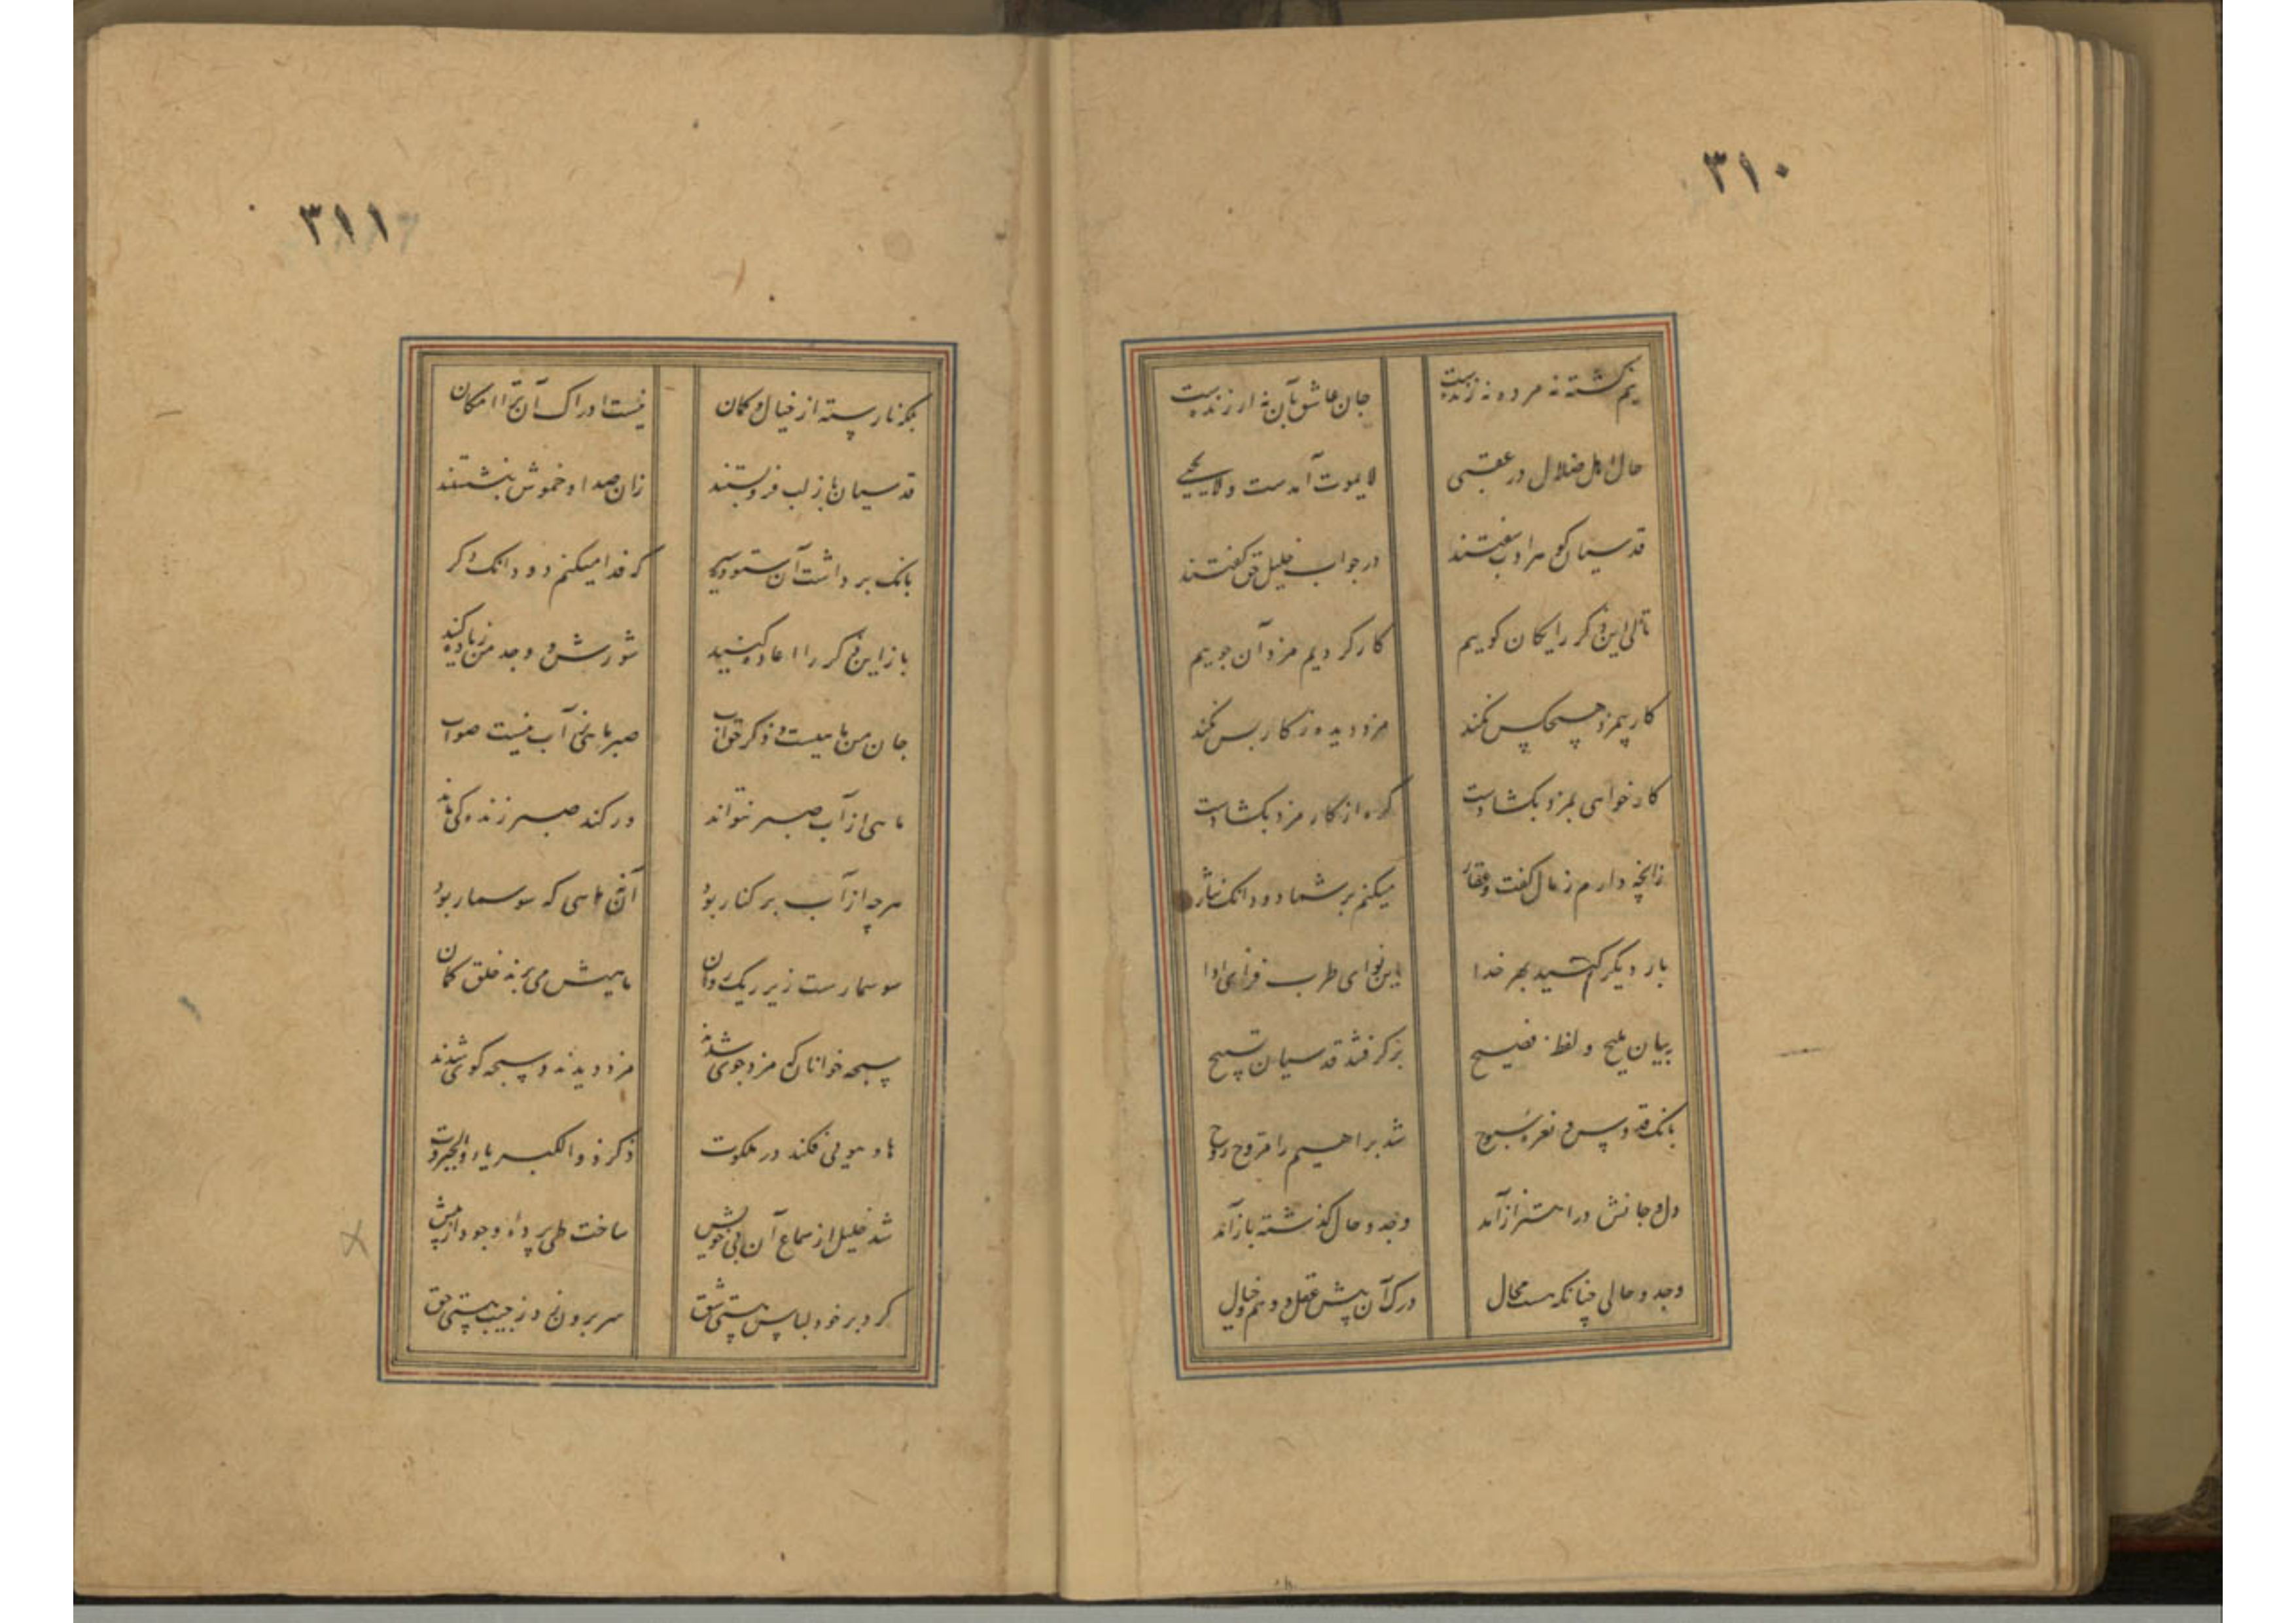 ۳۱۰
نیم کشته نه مرده نه زنده‌ست جان عاشق بآن نه ارزنده‌ست
حال اهل ضلال در عقبی لایموت آمدست و لایحیی
قدسیان گوهر ادب سفتند در جواب خلیل حق گفتند
تا کی این ذکر رایکان کوییم کار کردیم مزد آن جوییم
کار بیمزد هیچکس نکند مزد دیده ز کار بس نکند
کار خواهی بمزد بکشا دست کره از کار مزد بکشادست
زانچه دارم ز مال گفت و عقار میکنم بر شما دو دانک نثار
بار دیکر کشید بهر خدا این نوای طرب فزای ادا
برکرفتند قدسیان تسبیح ببیان ملیح و لفظ فصیح
بانک قدوس و نعره سبوح شد براهیم را فتوح روح
دل و جانش در اهتزاز آمد وجد و حال کذشته باز آمد
وجد و حالی چنانکه هست محال درک آن پیش عقل و وهم و خیال
۳۱۱
نیست ادراک آن ترا امکان
قدسیان باز لب فرو بستند زان صدا و خموش بنشستند
بانک برداشت آن ستوده سیر که فدا میکنم دو دانک دکر
باز این ذکر را اعاده کنید شورش و وجد من زیاده کنید
جان من ماهیست و ذکر تو آب صبر ماهی ز آب نیست صواب
ماهی از آب صبر نتواند ور کند صبر زنده کی ماند
هر چه از آب بر کنار بود آن نه ماهی که سوسمار بود
سوسمارست زیر ریک روان ماهیش می برند خلق کمان
سبحه خوانان که مزد جوی شدند مزد دیدند و سبحه کوی شدند
های و هویی فکند در ملکوت ذکر ذو الکبریاء والجبروت
شد خلیل از سماع آن بی خویش ساخت طی پردهٔ وجود از پیش
کرد بر خود لباس هستی شق سر برون زد ز جیب هستی حق